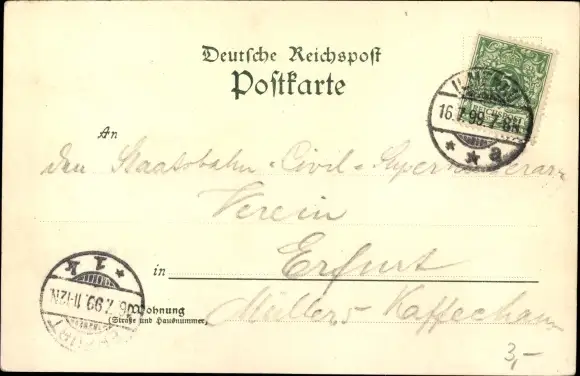 Deutsche Reichspost
Postkarte
ILMENAU
16.7.99.7-8N.
* * a
An
den Staatsbahn-Civil-Supernumerar-
Verein
in Erfurt
Wohnung
(Straße und Hausnummer)
Müllers Kaffeehaus
ERFURT
16.7.99.11-12N.
* 1 k
3,-